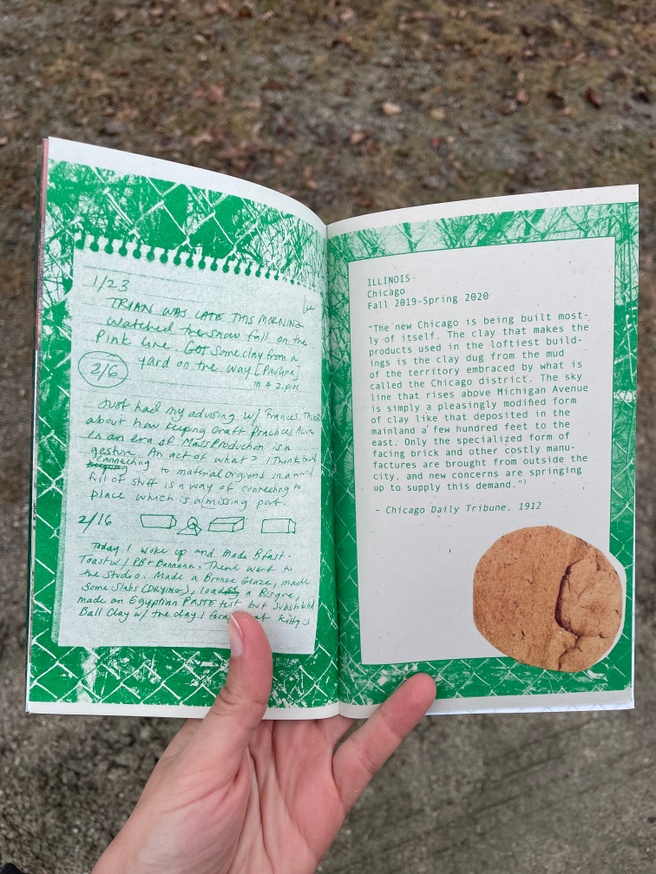 1/23
TRIAN WAS LATE THIS MORNING
Watched the snow fall on the
Pink line Got some clay from a
yard on the way [Paulina]
2/6
in a 2.pin
Just had my advising w/ Frances
about how keeping Craft Practices Alive
in an era of Mass Production is a
gesture. An act of what? I think but
connecting to material orgions in a world
full of stuff is a way of connecting to
place which is a missing part.
2/16
Today I woke up and made Bfast-
Toast w/ PB + Bannana. Then went to
the studio. Made a Bronze Glaze, made
Some Slabs (DRYING), loaded a Bisque,
made an Egyptian PASTE test but Substituted
Ball Clay w/ the clay I forag at Kitty's
ILLINOIS
Chicago
Fall 2019-Spring 2020
"The new Chicago is being built most-
ly of itself. The clay that makes the
products used in the loftiest build-
ings is the clay dug from the mud
of the territory embraced by what is
called the Chicago district. The sky
line that rises above Michigan Avenue
is simply a pleasingly modified form
of clay like that deposited in the
mainland a few hundred feet to the
east. Only the specialized form of
facing brick and other costly manu-
factures are brought from outside the
city, and new concerns are springing
up to supply this demand."¹
- Chicago Daily Tribune, 1912